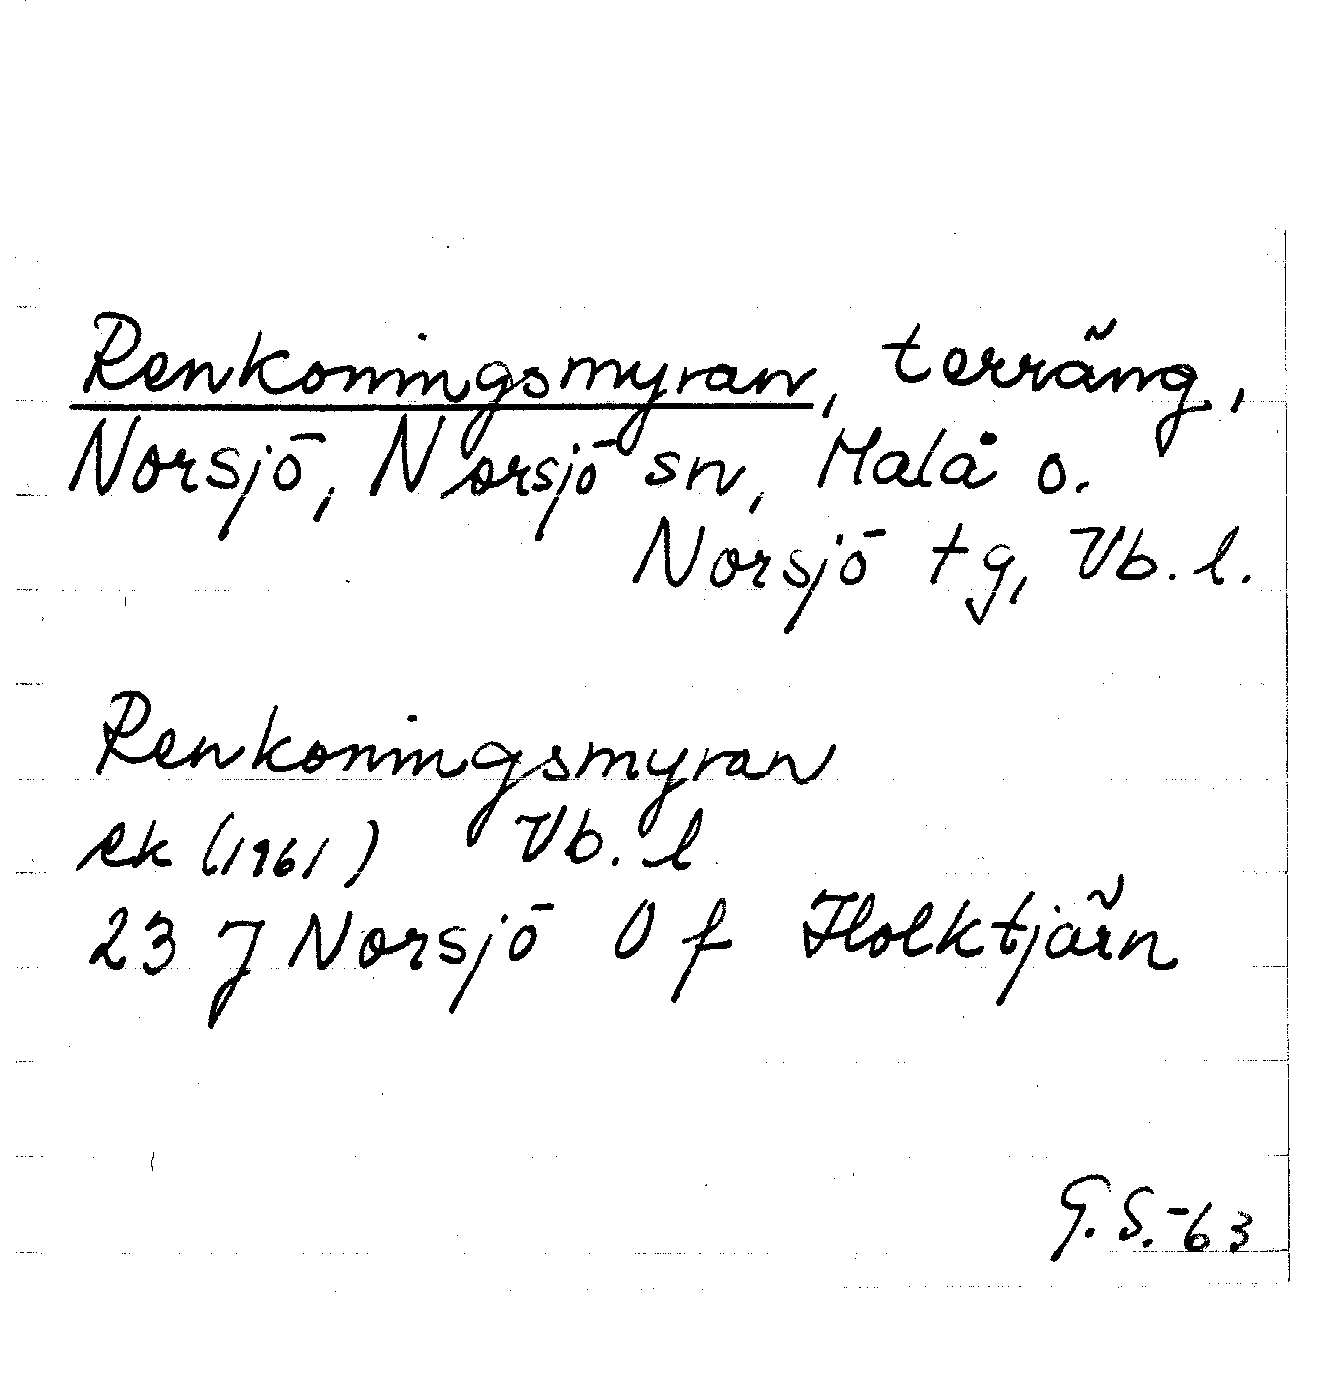 Renkoningsmyran, terräng,
Norsjö, Norsjö sn, Malå o.
Norsjö tg, Vb. l.
Renkoningsmyran
ek (1961) Vb. l
23 J Norsjö 0 f Holktjärn
G. S. -63